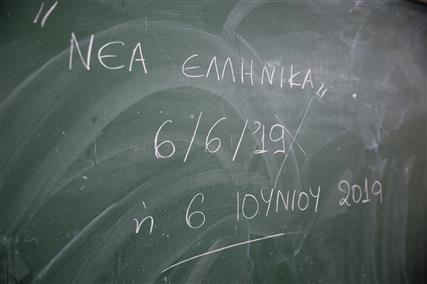 " ΝΕΑ ΕΛΛΗΝΙΚΑ „
6/6/'19
ή 6 ΙΟΥΝΙΟΥ 2019